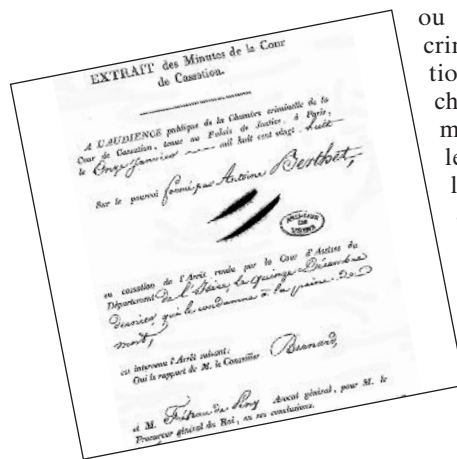 EXTRAIT des Minutes de la Cour
de Cassation.
A L'AUDIENCE publique de la Chambre criminelle de la
Cour de Cassation, tenue au Palais de Justice, à Paris,
le Onze Janvier mil huit cent vingt huit
Sur le pourvoi formé par Antoine Berthet,
en cassation de l'Arrêt rendu par la Cour d'Assises du
Département de l'Isère, le quinze Décembre
dernier, qui le condamne à la peine de
mort,
est intervenu l'Arrêt suivant:
Oui le rapport de M. le Conseiller Bernard,
et M. Fréteau de Peny Avocat général, pour M. le
Procureur général du Roi, en ses conclusions.
ou
crim
tion
ch
m
le
l